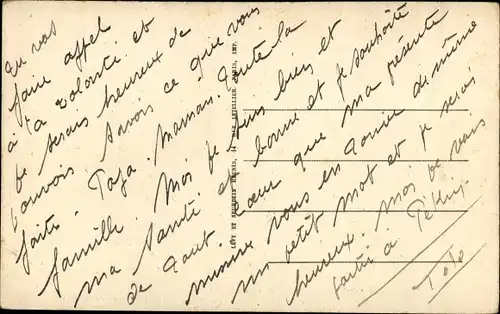 Tu vas
faire appel
à ta volonté et
je serais heureux de
pouvoir savoir ce que vous
faite. Papa. Maman. toute la
famille. Moi je suis bien et
ma santé est bonne et je souhaite
de tout cœur que ma présente
vous en donne de même
un petit mot et je serai
heureux. Moi je vais
partir à
Toto
LEVY ET NEURDEIN REUNIS, 44 RUE LETELLIER, PARIS, IMP.